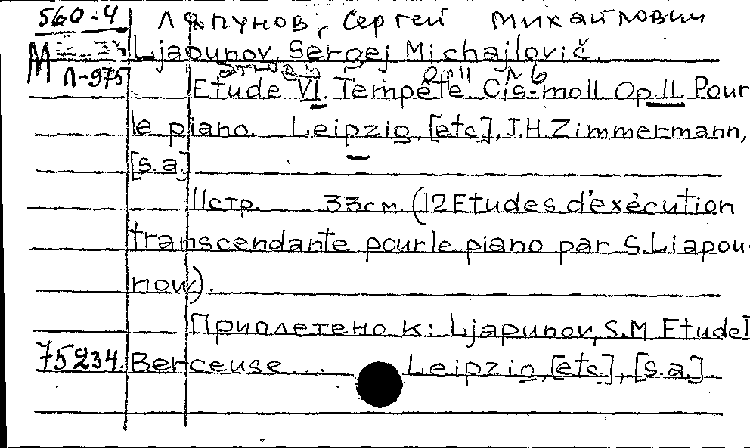 560-4 Ляпунов, Сергей Михайлович
М Ljapunov, Sergej Michajlovič.
Л-975
Op 11 N 6
Etude VI. Tempête Cis-moll Op.11. Pour
le piano. Leipzig, [etc], J.H.Zimmermann,
[s.a.]
11стр. 33см. (12 Etudes d'exècution
transcendante pour le piano par S.Liapou-
now).
Приплетено к: Ljapunov, S.M. Etude I
75234. Berceuse... Leipzig, [etc], [s.a.]